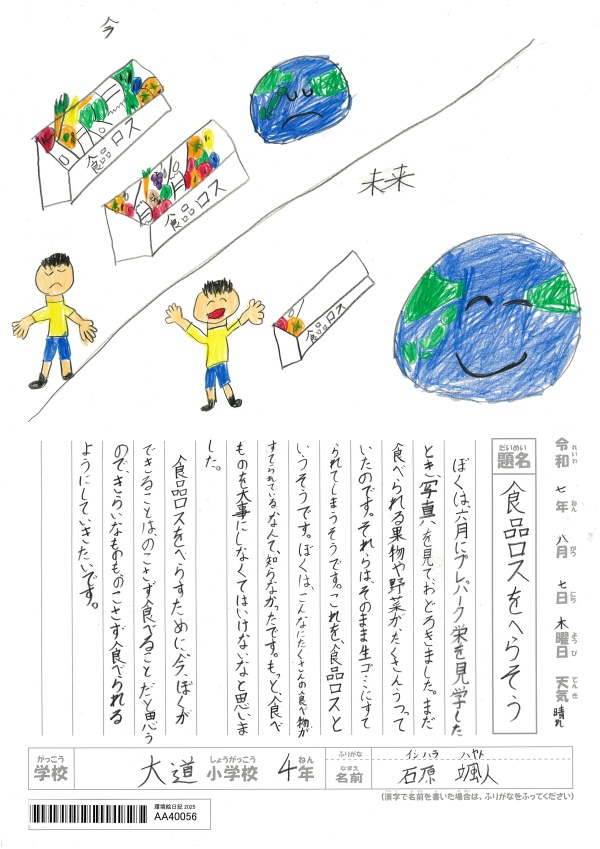 今
食品ロス
食品ロス
未来
食品ロス
令和七年八月七日木曜日天気晴れ
れいわ ねん がつ にち ようび てんき
だいめい
題名
食品ロスをへらそう
ぼくは六月にプレパーク栄を見学した
とき、写真を見ておどろきました。まだ
食べられる果物や野菜が、たくさんうつって
いたのです。それらは、そのまま生ゴミにすて
られてしまうそうです。これを、食品ロスと
いうそうです。ぼくは、こんなにたくさんの食べ物が
すてられているなんて、知らなかったです。もっと、食べ
ものを大事にしなくてはいけないなと思いま
した。
食品ロスをへらすために、今、ぼくが
できることは、のこさず食べることだと思う
ので、きらいなものものこさず食べられる
ようにしていきたいです。
がっこう しょうがっこう ねん
学校 大道小学校 4年
ふりがな イシハラ ハヤト
なまえ
名前 石原 颯人
(漢字で名前を書いた場合は、ふりがなをふってください)
環境絵日記 2025
AA40056